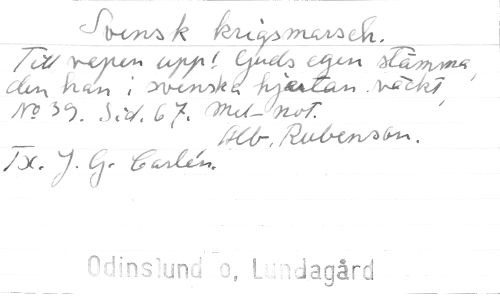 Svensk krigsmarsch.
Till vapen upp! Guds egen stämma,
den han i svenska hjertan väckt,
No 39. Sid. 67. Mel- not.
Alb. Rubenson.
Tx. J. G. Carlén.
Odinslund o, Lundagård